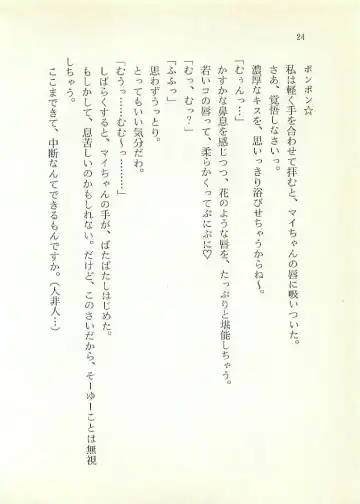 24
ポンポン☆
私は軽く手を合わせて拝むと、マイちゃんの唇に吸いついた。
さあ、覚悟しなさいっ。
濃厚なキスを、思いっきり浴びせちゃうからね～。
「むぅんっ…」
かすかな鼻息を感じつつ、花のような唇を、たっぷりと堪能しちゃう。
若いコの唇って、柔らかくってぷにぷに♡
「むっ、むっ？」
「ふふっ」
思わずうっとり。
とってもいい気分だわ。
「むうっ……むむ～っ…………」
しばらくすると、マイちゃんの手が、ばたばたしはじめた。
もしかして、息苦しいのかもしれない。だけど、このさいだから、そーゆーことは無視
しちゃう。
ここまできて、中断なんてできるもんですか。（人非人…）